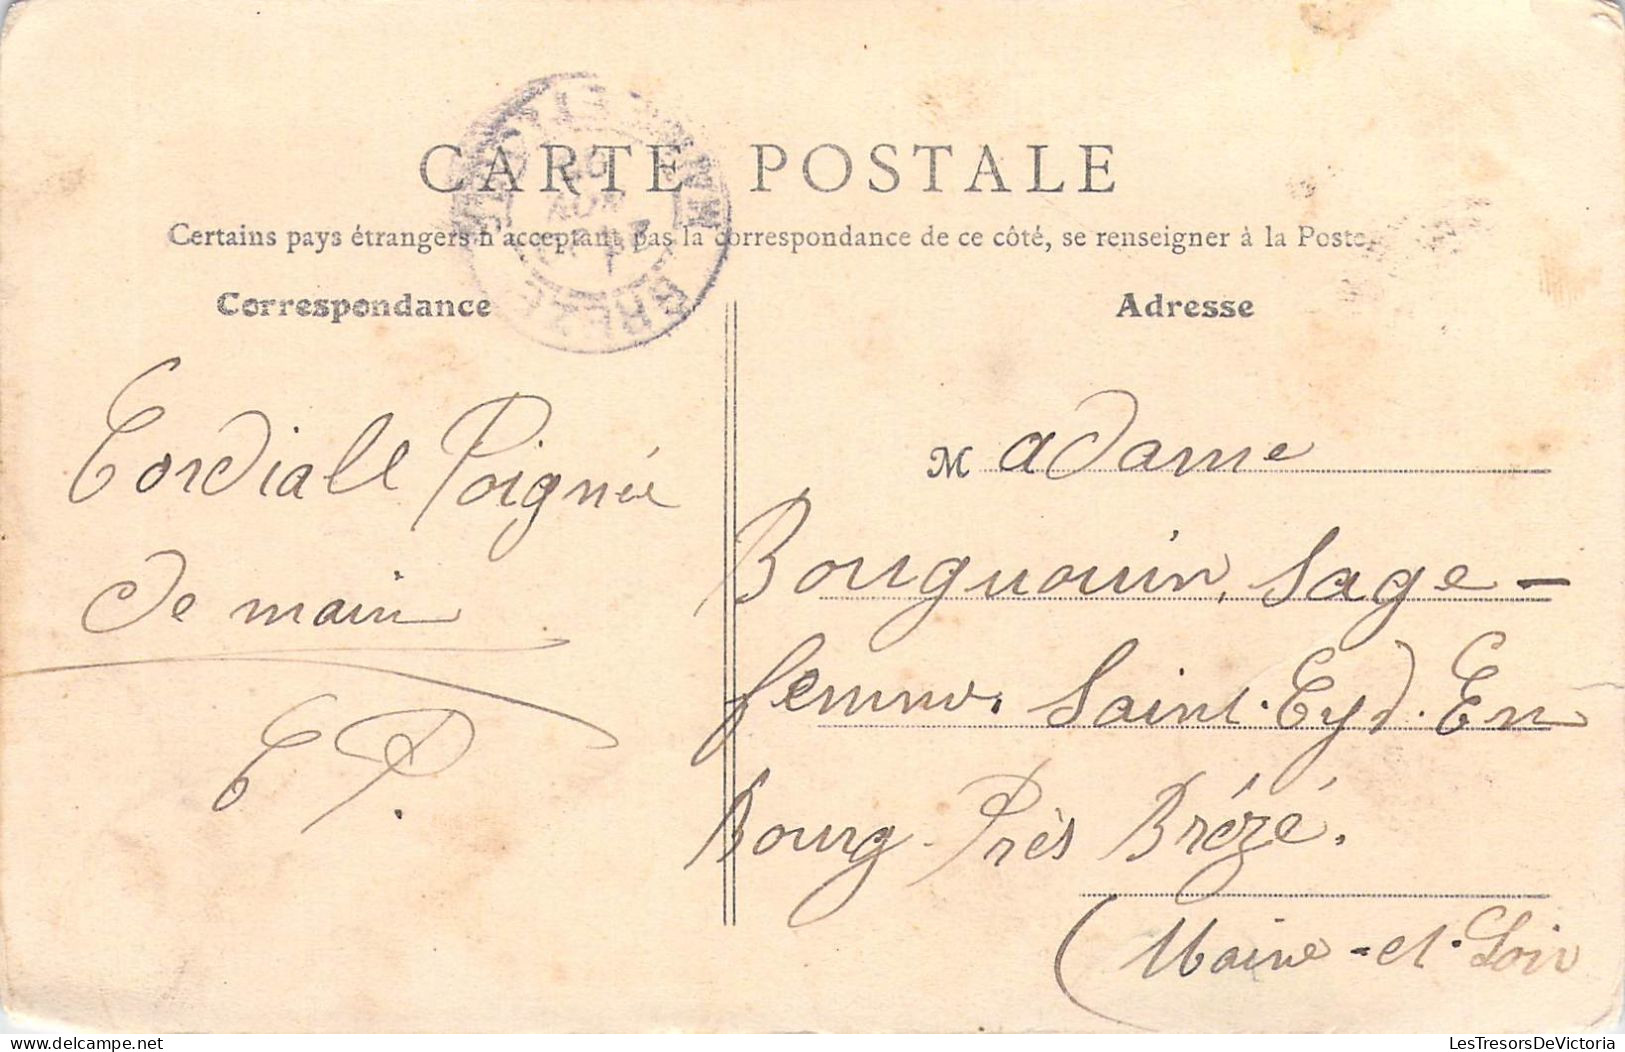 CARTE POSTALE
Certains pays étrangers n'acceptant pas la correspondance de ce côté, se renseigner à la Poste
Correspondance
Adresse
Cordiale Poignée
de main
C P.
Madame
Bouguouin, Sage-
femme. Saint. Cyd. En
Bourg. Près Brézé.
(Maine-et-Loir
MAINE-ET-LOIRE
BRÉZÉ
delcampe.net
LesTresorsDeVictoria